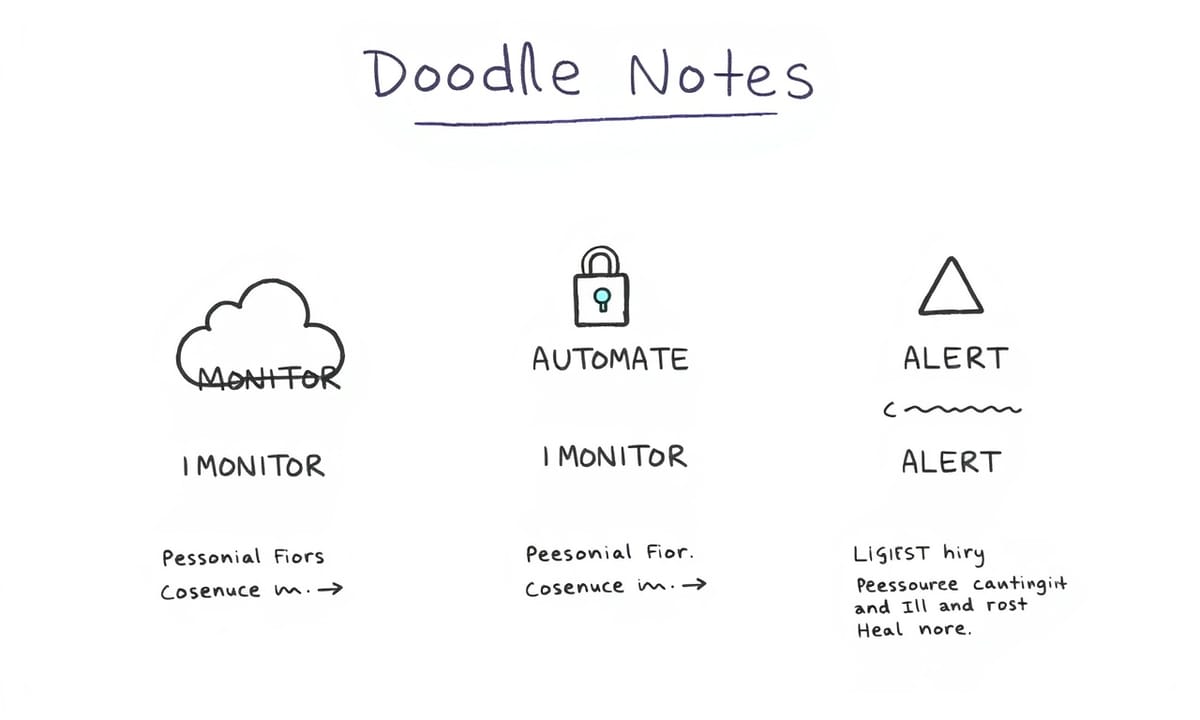 Doodle Notes
MONITOR
1 MONITOR
Pessonial Fiors
Cosenuce in. →
AUTOMATE
1 MONITOR
Peesonial Fior.
Cosenuce in. →
ALERT
ALERT
LiGIEST hiry
Peessouree cantingirt
and Ill and rost
Heal nore.